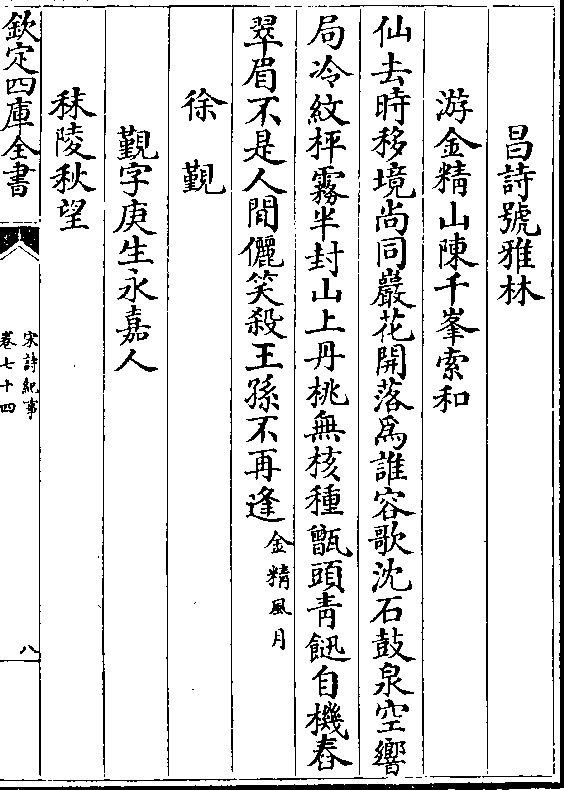 昌詩號雅林
游金精山陳千峯索和
仙去時移境尚同巖花開落爲誰容歌沈石鼓泉空響
局冷紋枰霧半封山上丹桃無核種甑頭青飿自機舂
翠眉不是人間儷笑殺王孫不再逢金精風月
徐觀
觀字庚生永嘉人
秣陵秋望
欽定四庫全書
宋詩紀事
卷七十四
八